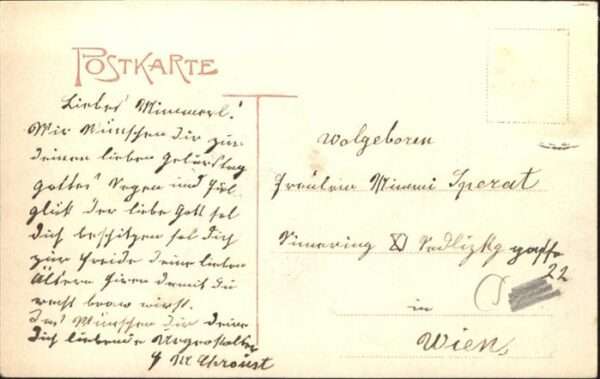 POSTKARTE
Liebes Mimmerl!
Wir Wünschen dir zu
deinen lieben Geburstag
gottes Segen und
glück der liebe Gott sol
dich beschitzen sol dich
zur freide deine lieben
Ältern firen damit du
recht braw wirst.
Das Wünschen dir deine
dich liebende
Wolgeboren
Fräulein Mimmi Sperat
Simering XI Sedlizky gasse
22
in
Wien